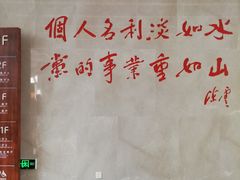 個人名利淡如水
黨的事業重如山
陈雲
F
F
1F